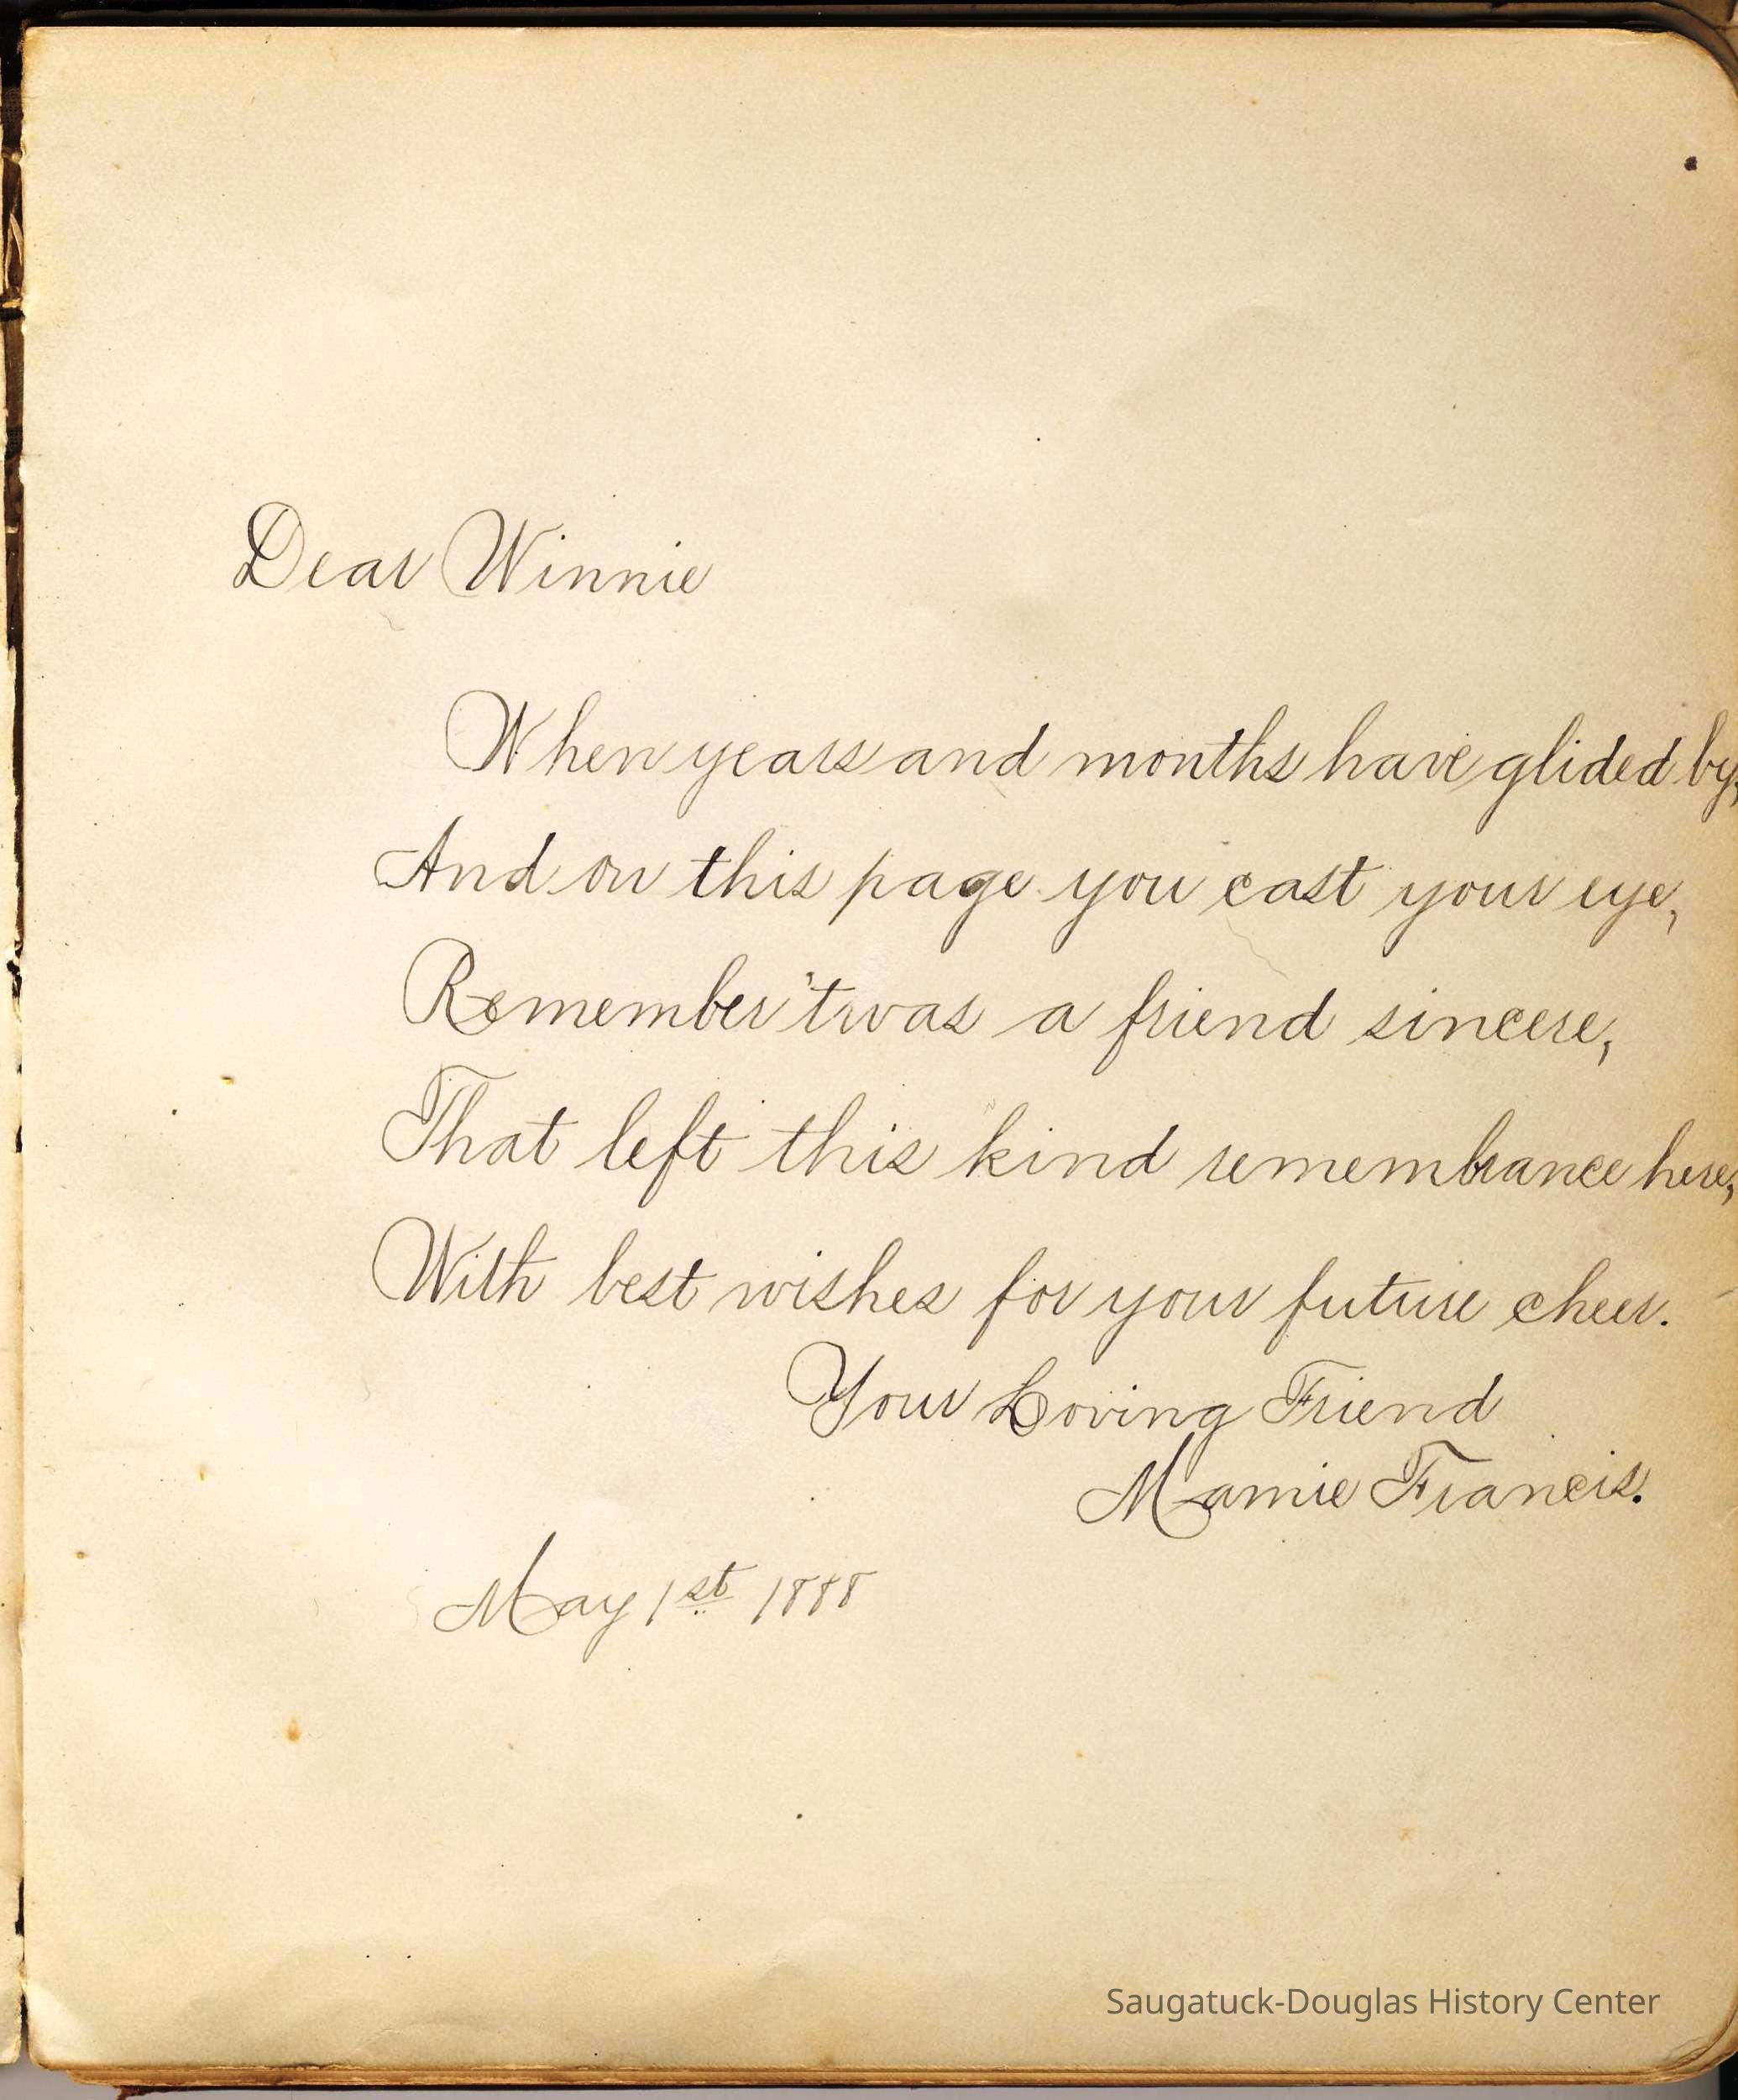 Dear Winnie
When years and months have glided by,
And on this page you cast your eye,
Remember 'twas a friend sincere,
That left this kind remembrance here,
With best wishes for your future cheer.
Your Loving Friend
Mamie Francis.
May 1st 1888
Saugatuck-Douglas History Center